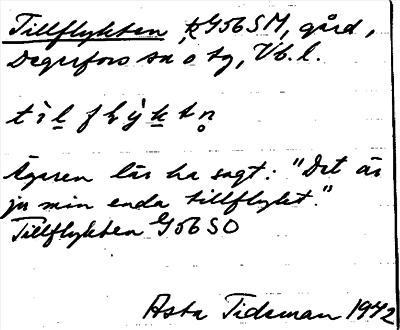 Tillflykten, G56SM, gård,
Degerfors sn o tg, Vb. l.
tìl flỳktn̥
Ägaren lär ha sagt: "Det är
ju min enda tillflykt."
Tillflykten G56SO
Asta Tideman 1972